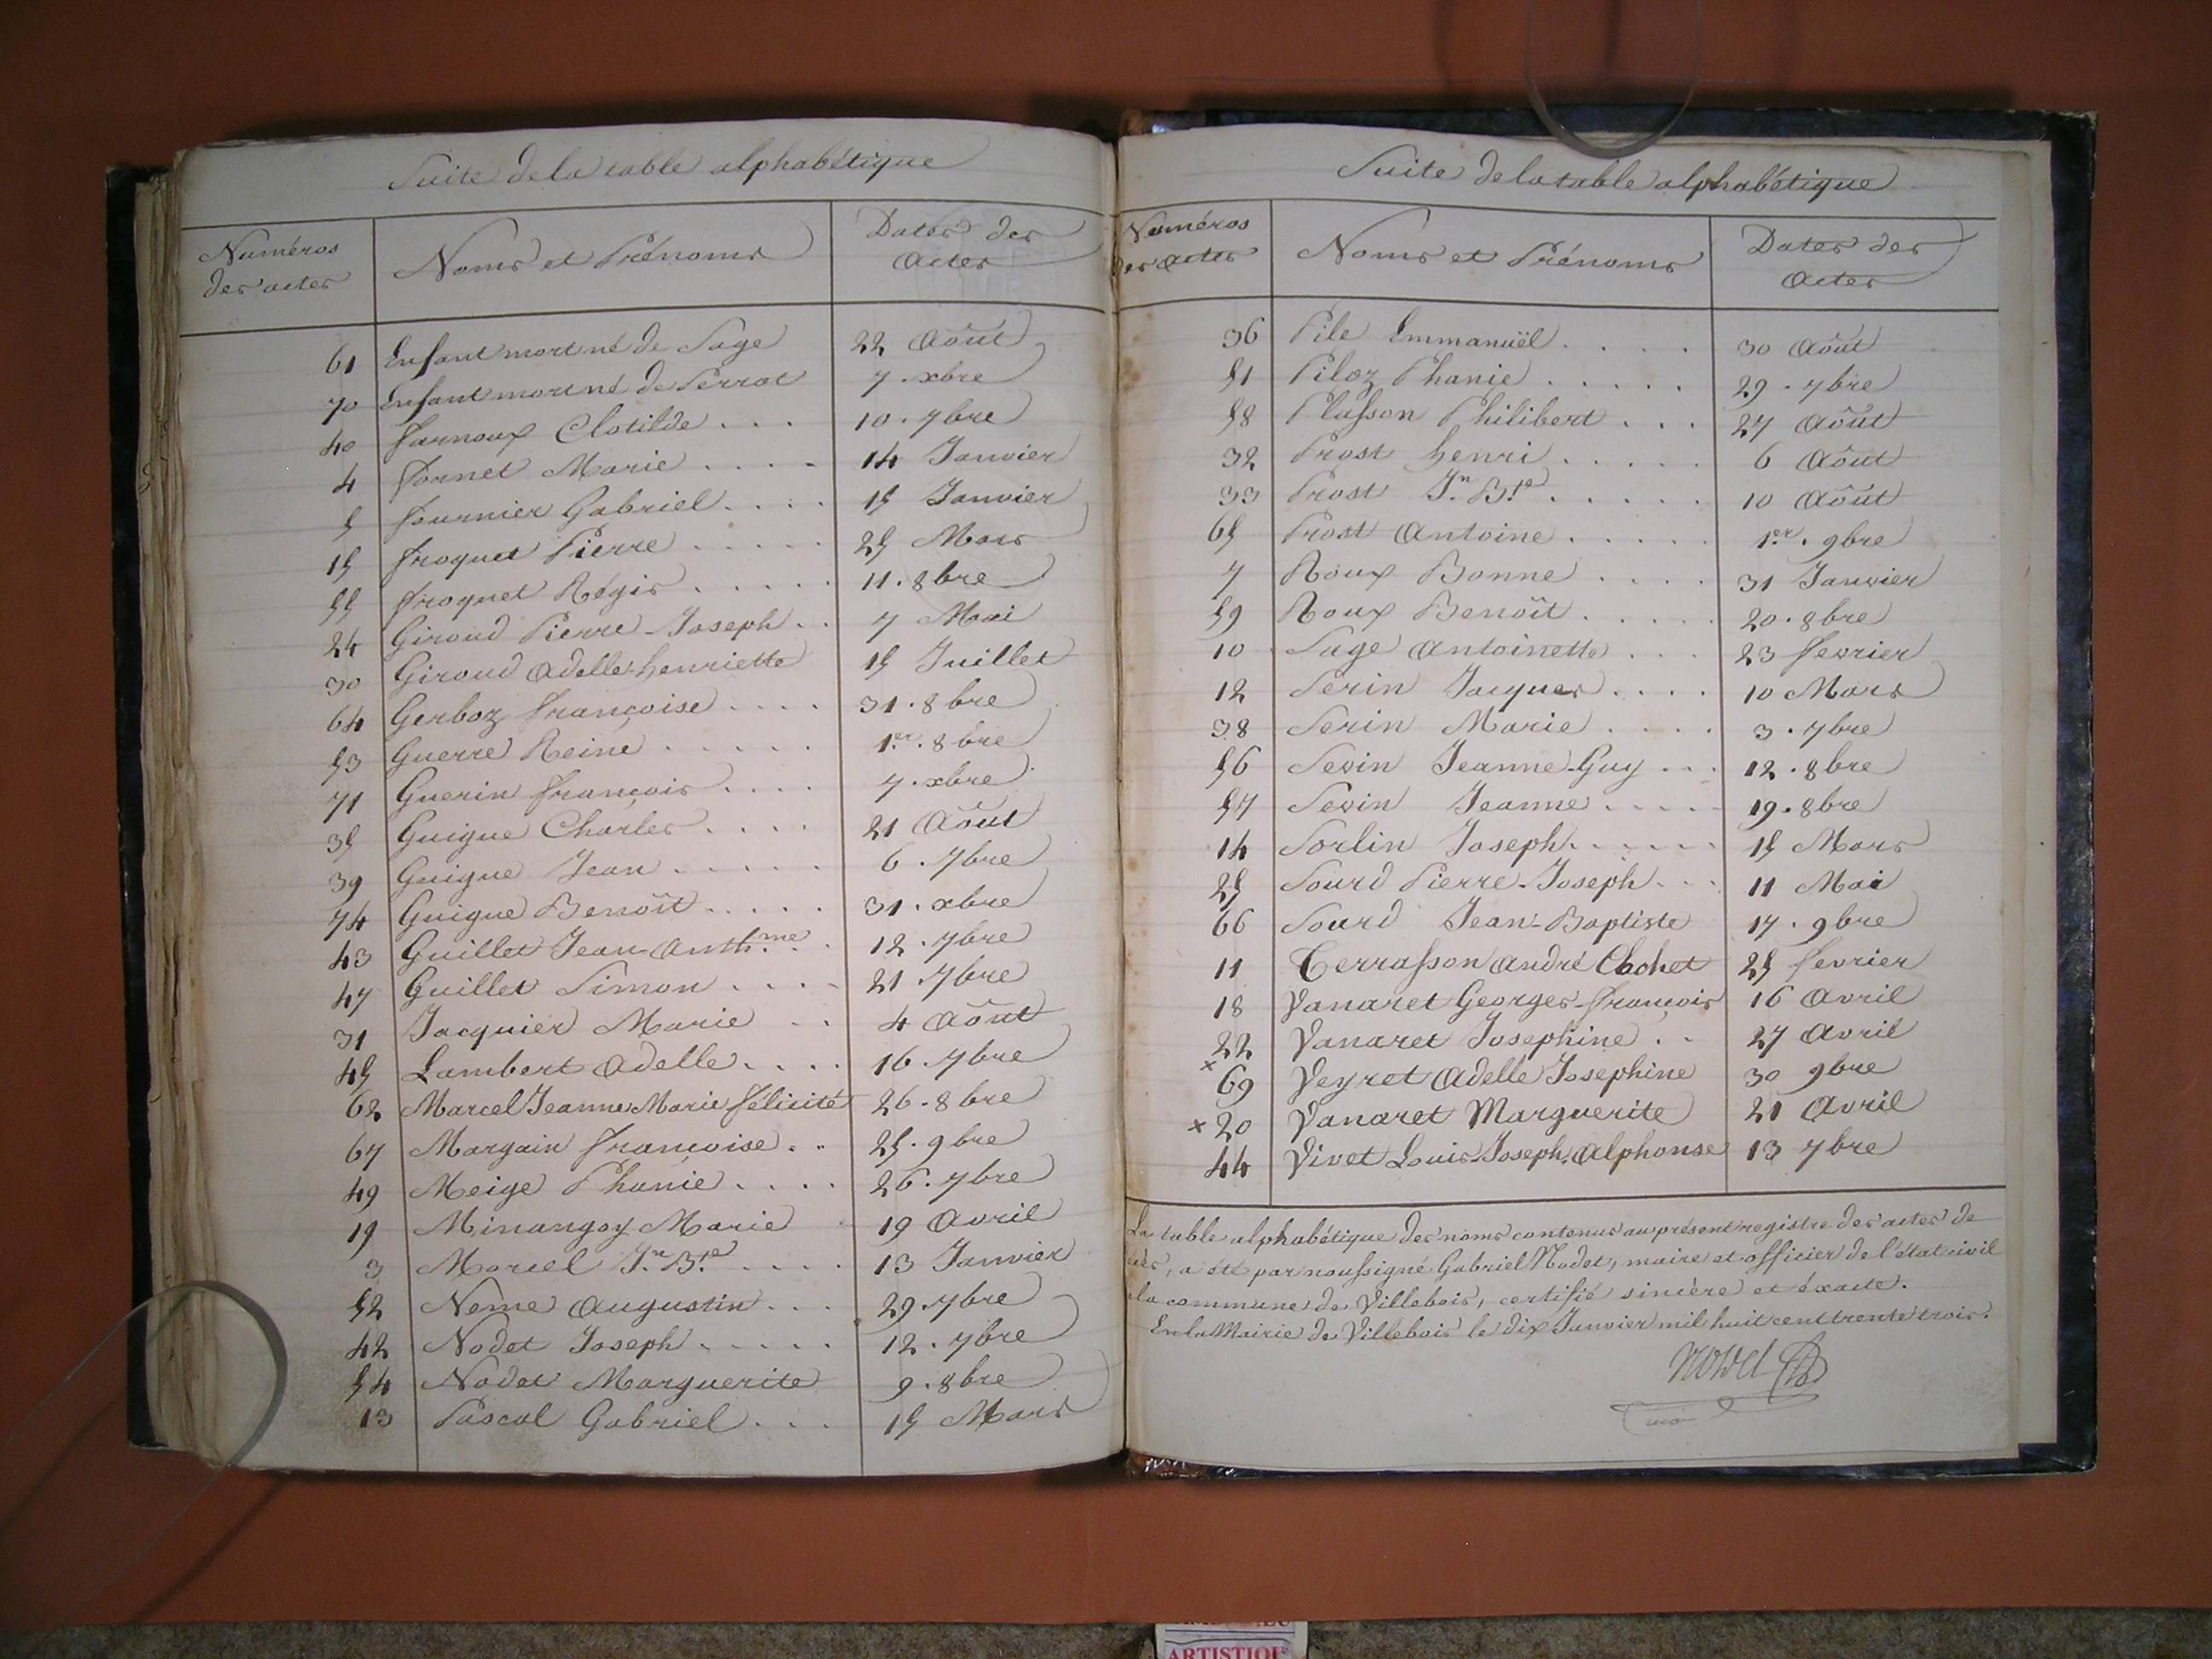 Suite de la table alphabétique
Numéros des actes Noms et Prénoms Dates des Actes
61 Enfant mort né de Sage 22 Août
70 Enfant mort né de Perrot 7. xbre
40 farnoux Clotilde . . . 10. 7bre
4 fornet Marie . . . . 14 Janvier
5 fournier Gabriel . . . . 15 Janvier
15 froquet Pierre . . . . . 25 Mars
55 froquet Régis . . . . . 11. 8bre
24 Giroud Pierre-Joseph . . 7 Mai
30 Giroud Adelle-henriette 15 Juillet
64 Gerboz françoise . . . . 31. 8bre
53 Guerre Reine . . . . . 1er. 8bre
71 Guerin françois . . . . 7. xbre
35 Guigue Charles . . . . 21 Août
39 Guigue Jean . . . . . 6. 7bre
74 Guigue Benoît . . . . . 31. xbre
43 Guillet Jean-Anth.me . . 12. 7bre
47 Guillet Simon . . . . 21. 7bre
31 Jacquier Marie . . 4 Août
45 Lambert Adelle . . . . 16. 7bre
62 Marcel Jeanne Marie félicité 26. 8bre
67 Margain françoise . . 25. 9bre
49 Meige Phanie . . . . 26. 7bre
19 Minangoy Marie 19 Avril
3 Morel J.n B.te . . . . 13 Janvier
52 Neme Augustin . . . 29. 7bre
42 Nodet Joseph . . . . . 12. 7bre
54 Nodet Marguerite 9. 8bre
13 Pascal Gabriel . . . 15 Mars
Suite de la table alphabétique
Numéros des actes Noms et Prénoms Dates des Actes
36 Pile Emmanuël . . . . 30 Août
51 Piloz Phanie . . . . . 29. 7bre
58 Plasson Philibert . . . 27 Août
32 Prost henri . . . . . 6 Août
33 Prost J.n B.te . . . . . 10 Août
65 Prost Antoine . . . . . 1er. 9bre
7 Roux Bonne . . . . 31 Janvier
59 Roux Benoît . . . . . 20. 8bre
10 Sage Antoinette . . . 23 fevrier
12 Serin Jacques . . . . 10 Mars
38 Serin Marie . . . . 3. 7bre
56 Sevin Jeanne-Guy . . . 12. 8bre
57 Sevin Jeanne . . . . 19. 8bre
14 Sorlin Joseph . . . . . 15 Mars
25 Sourd Pierre-Joseph . . . 11 Mai
66 Sourd Jean-Baptiste 17. 9bre
11 Terrasson André Clochet 25 fevrier
18 Vanaret Georges-françois 16 Avril
22 Vanaret Josephine . . 27 Avril
× 69 Veyret Adelle Josephine 30 9bre
× 20 Vanaret Marguerite 21 Avril
44 Vivet Louis-Joseph, Alphonse 13 7bre
La table alphabétique des noms contenus au présent registre des actes de
décès, a été par nous signé Gabriel Nodet, maire et officier de l'état civil
de la commune de Villebois, certifié sincère et éxacte.
En la Mairie de Villebois le dix Janvier mil huit cent trente trois.
Nodet
ARTISTIQ